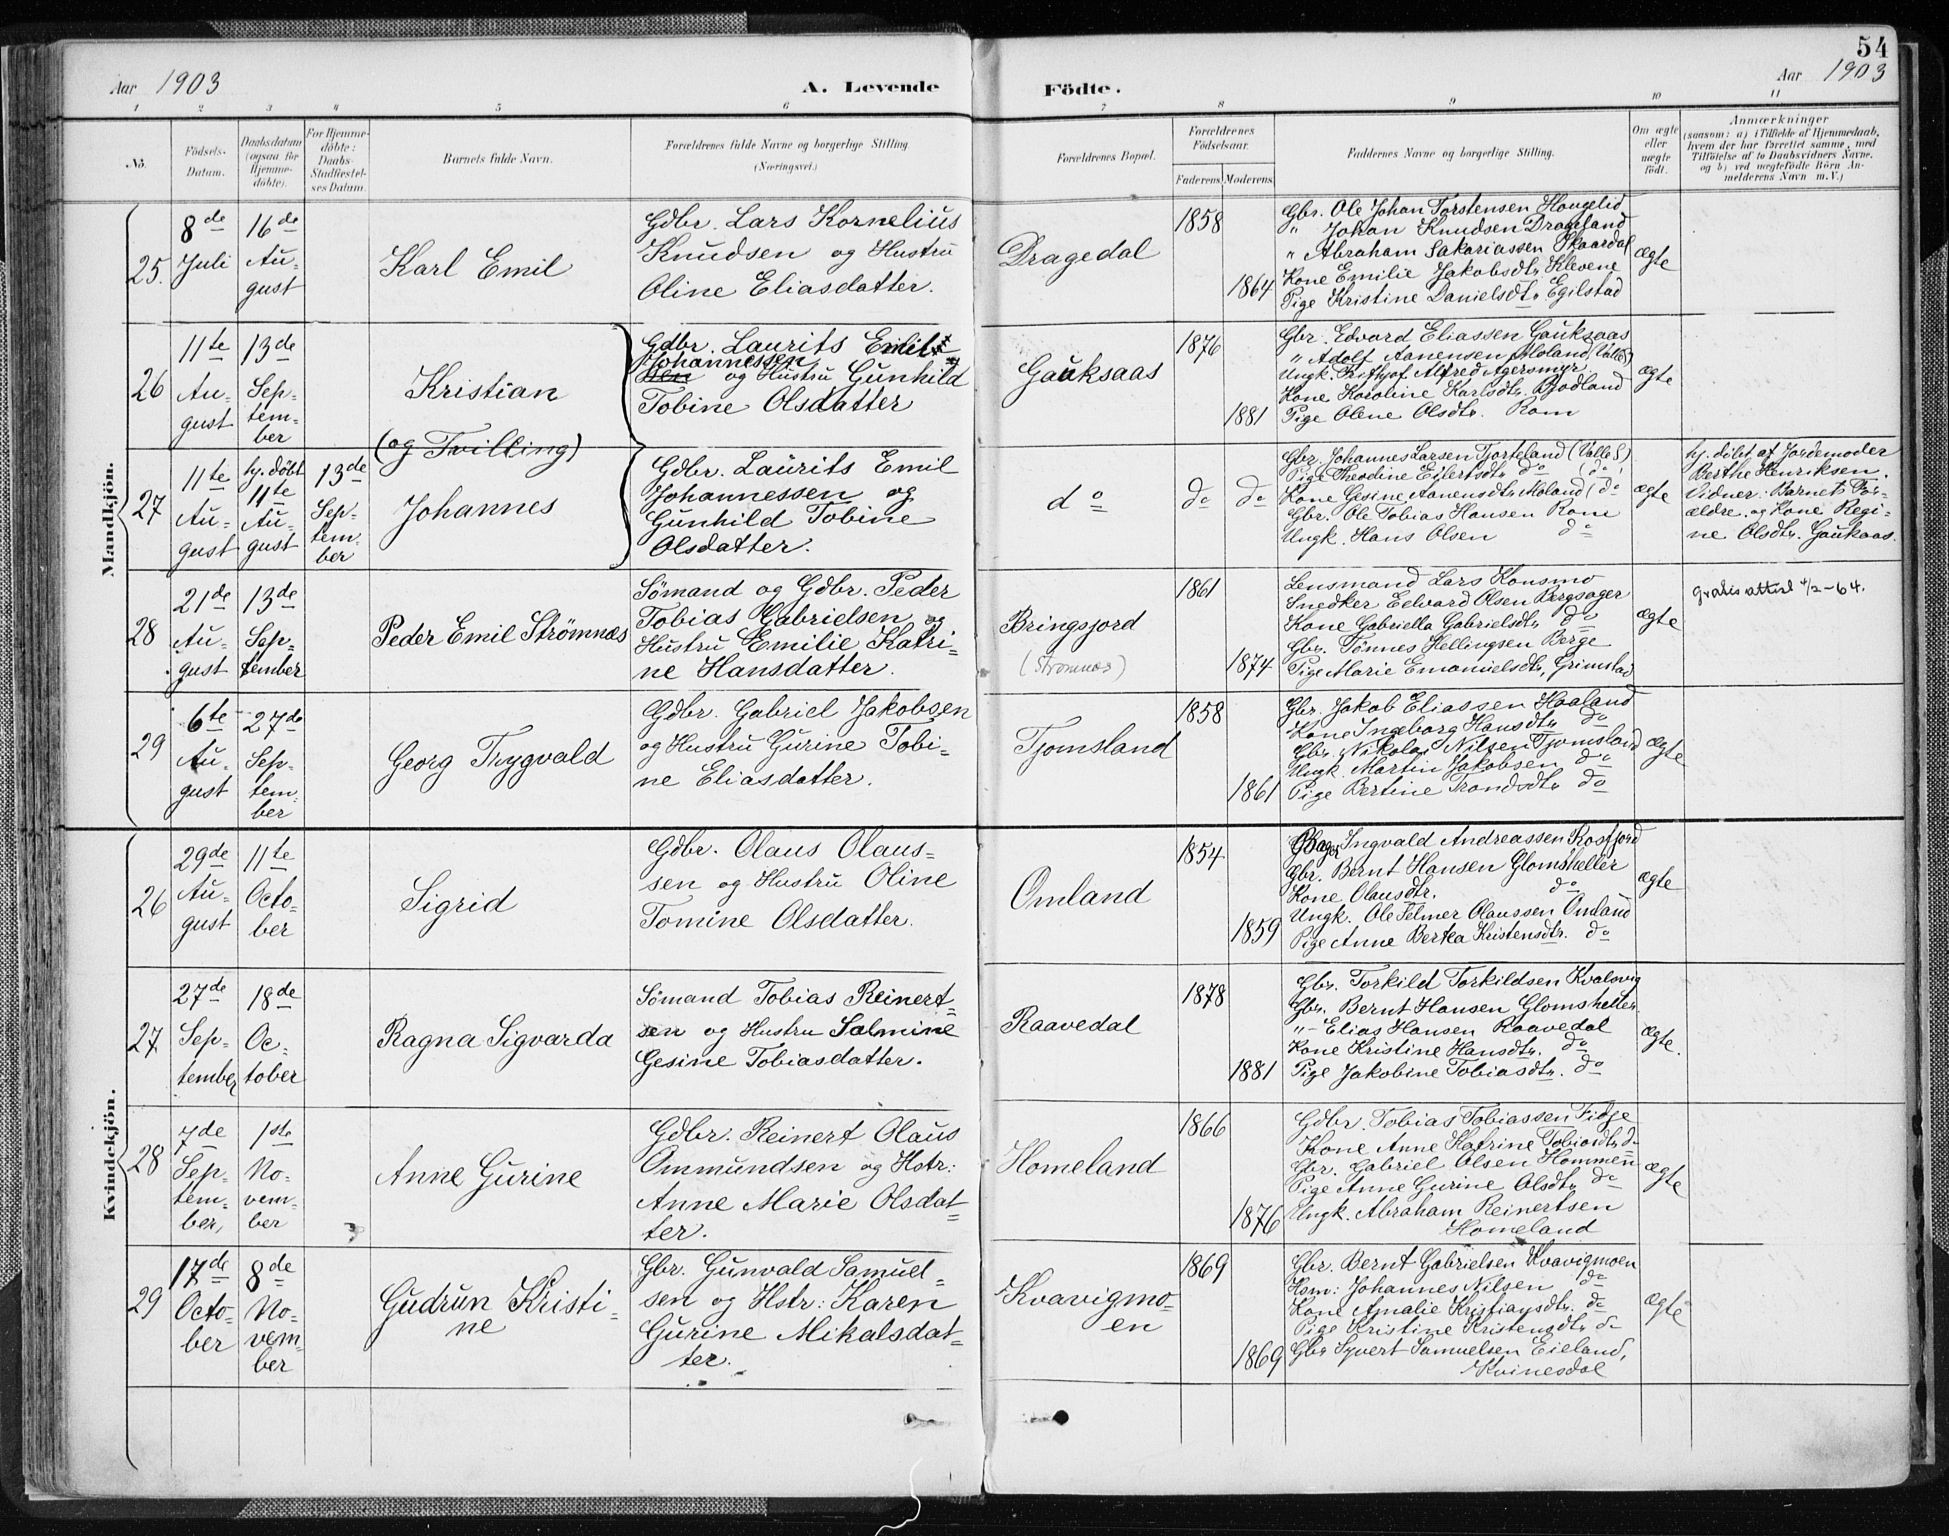 54
Aar 1903
A. Levende
Födte.
Aar 1903
1 2 3 4 5 6 7 8 9 10 11
No.
Födsels-Datum.
Daabsdatum (ogsaa for Hjemmedöbte).
For Hjemmedöbte: Daabs-Stadfæstelses Datum.
Barnets fulde Navn.
Forældrenes fulde Navne og borgerlige Stilling (Næringsvei.)
Forældrenes Bopæl.
Forældrenes Födselsaar.
Faderens Moderens
Faddernes Navne og borgerlige Stilling.
Om ægte eller uægte födt.
Anmærkninger
(saasom: a) i Tilfælde af Hjemmedaab, hvem der har forrettet samme, med Tilföielse af to Daabsvidners Navne, og b) ved uægtefödte Börn Anmelderens Navn m. V.)
Mandkjön.
25.
8de Juli
16de August
Karl Emil
Gdbr. Lars Kornelius
Knudsen og Hustru
Oline Eliasdatter.
Dragedal
1858
1864
Gbr. Ole Johan Torstensen Hougelid
" Johan Knudsen Drageland
" Abraham Sakariassen Skaardal
Kone Emilie Jakobsdtr. Klevene
Pige Kristine Danielsdtr. Egilstad
ægte
26
11te August
13de September
Kristian
(og Tvilling)
Gdbr. Laurits Emil
Johannessen
og Hustru Gunhild
Tobine Olsdatter
Gauksaas
1876
1881
Gbr. Edvard Eliassen Gauksaas
" Adolf Aanensen Moland (Valle S)
Ungk. Rithjof Alfred Agersmyr
Kone Karoline Karlsdtr. Bjodland
Pige Olene Olsdtr. Rom
ægte
27
11te August
hj. döbt 11te August
13de September
Johannes
Gdbr. Laurits Emil
Johannessen og
Gunhild Tobine
Olsdatter.
do
do
do
Gbr. Johannes Larsen Tjorteland (Valle S)
Pige Theodine Eilertsdtr. do (do)
Kone Gesine Aanensdtr. Moland (do
Gbr. Ole Tobias Hansen Rom
Ungk. Hans Olsen do
ægte
hj. döbt af Jordemoder
Berthe Henriksen.
Vidner: Barnets For-
ældre og Kone Regi-
ne Olsdtr. Gauksaas.
28
21de August
13de September
Peder Emil Strömnæs
Sömand og Gdbr. Peder
Tobias Gabrielsen og
Hustru Emilie Katri-
ne Hansdatter.
Bringsjord
(Strömnæs)
1861
1874
Lensmand Lars Konsmo
Snedker Edvard Olsen Bergsager
Kone Gabriella Gabrielsdtr. do
Gbr. Tönnes Hellingsen Berge
Pige Marie Emanuelsdtr. Grimstad
ægte
gratis attest 4/2-64.
29
6te August
27de September
Georg Trygvald
Gdbr. Gabriel Jakobsen
og Hustru Gurine Tobi-
ne Eliasdatter.
Tjomsland
1858
1861
Gbr. Jakob Eliassen Haaland
Kone Ingeborg Hansdtr. do
Gbr. Nikolai Nilsen Tjomsland
Ungk. Martin Jakobsen do
Pige Bertine Trondsdtr. do
ægte
Kvindekjön.
26
29de August
11te October
Sigrid
Gdbr. Olaus Olaus-
sen og Hustru Oline
Tomine Olsdatter.
Omland
1854
1859
Ingvald Andreassen Rosfjord
Gbr. Bernt Hansen Glomsheller
Kone Olausdtr. do
Ungk. Ole Telmer Olaussen Omland
Pige Anne Bertea Kristensdtr. do
ægte
27
27de September
18de October
Ragna Sigvarda
Sömand Tobias Reinert-
sen og Hustru Salmine
Gesine Tobiasdatter.
Raavedal
1878
1881
Gbr. Torkild Torkildsen Kvalsvig
Gbr. Bernt Hansen Glomsheller
" Elias Hansen Raavedal
Kone Kristine Hansdtr. do
Pige Jakobine Tobiasdtr. do
ægte.
28
7de September,
1ste November
Anne Gurine
Gdbr. Reinert Olaus
Ommundsen og Hstr:
Anne Marie Olsdat-
ter.
Homeland
1866
1876
Gdbr. Tobias Tobiassen Fidje
Kone Anne Katrine Tobiasdtr. do
Gbr. Gabriel Olsen Hommen
Pige Anne Gurine Olsdtr. do
Ungk. Abraham Reinertsen
Homeland
ægte
29
17de October
8de November
Gudrun Kristi-
ne
Gbr. Gunvald Samuel-
sen og Hstr: Karen
Gurine Mikalsdat-
ter.
Kvavigmo-
en
1869
1869
Gbr. Bernt Gabrielsen Kvavigmoen
Hsm: Johannes Nilsen do
Kone Amalie Kristiansdtr. do
Pige Kristine Kristensdtr. do
Gbr Syvert Samuelsen Eieland,
Kvinesdal
ægte